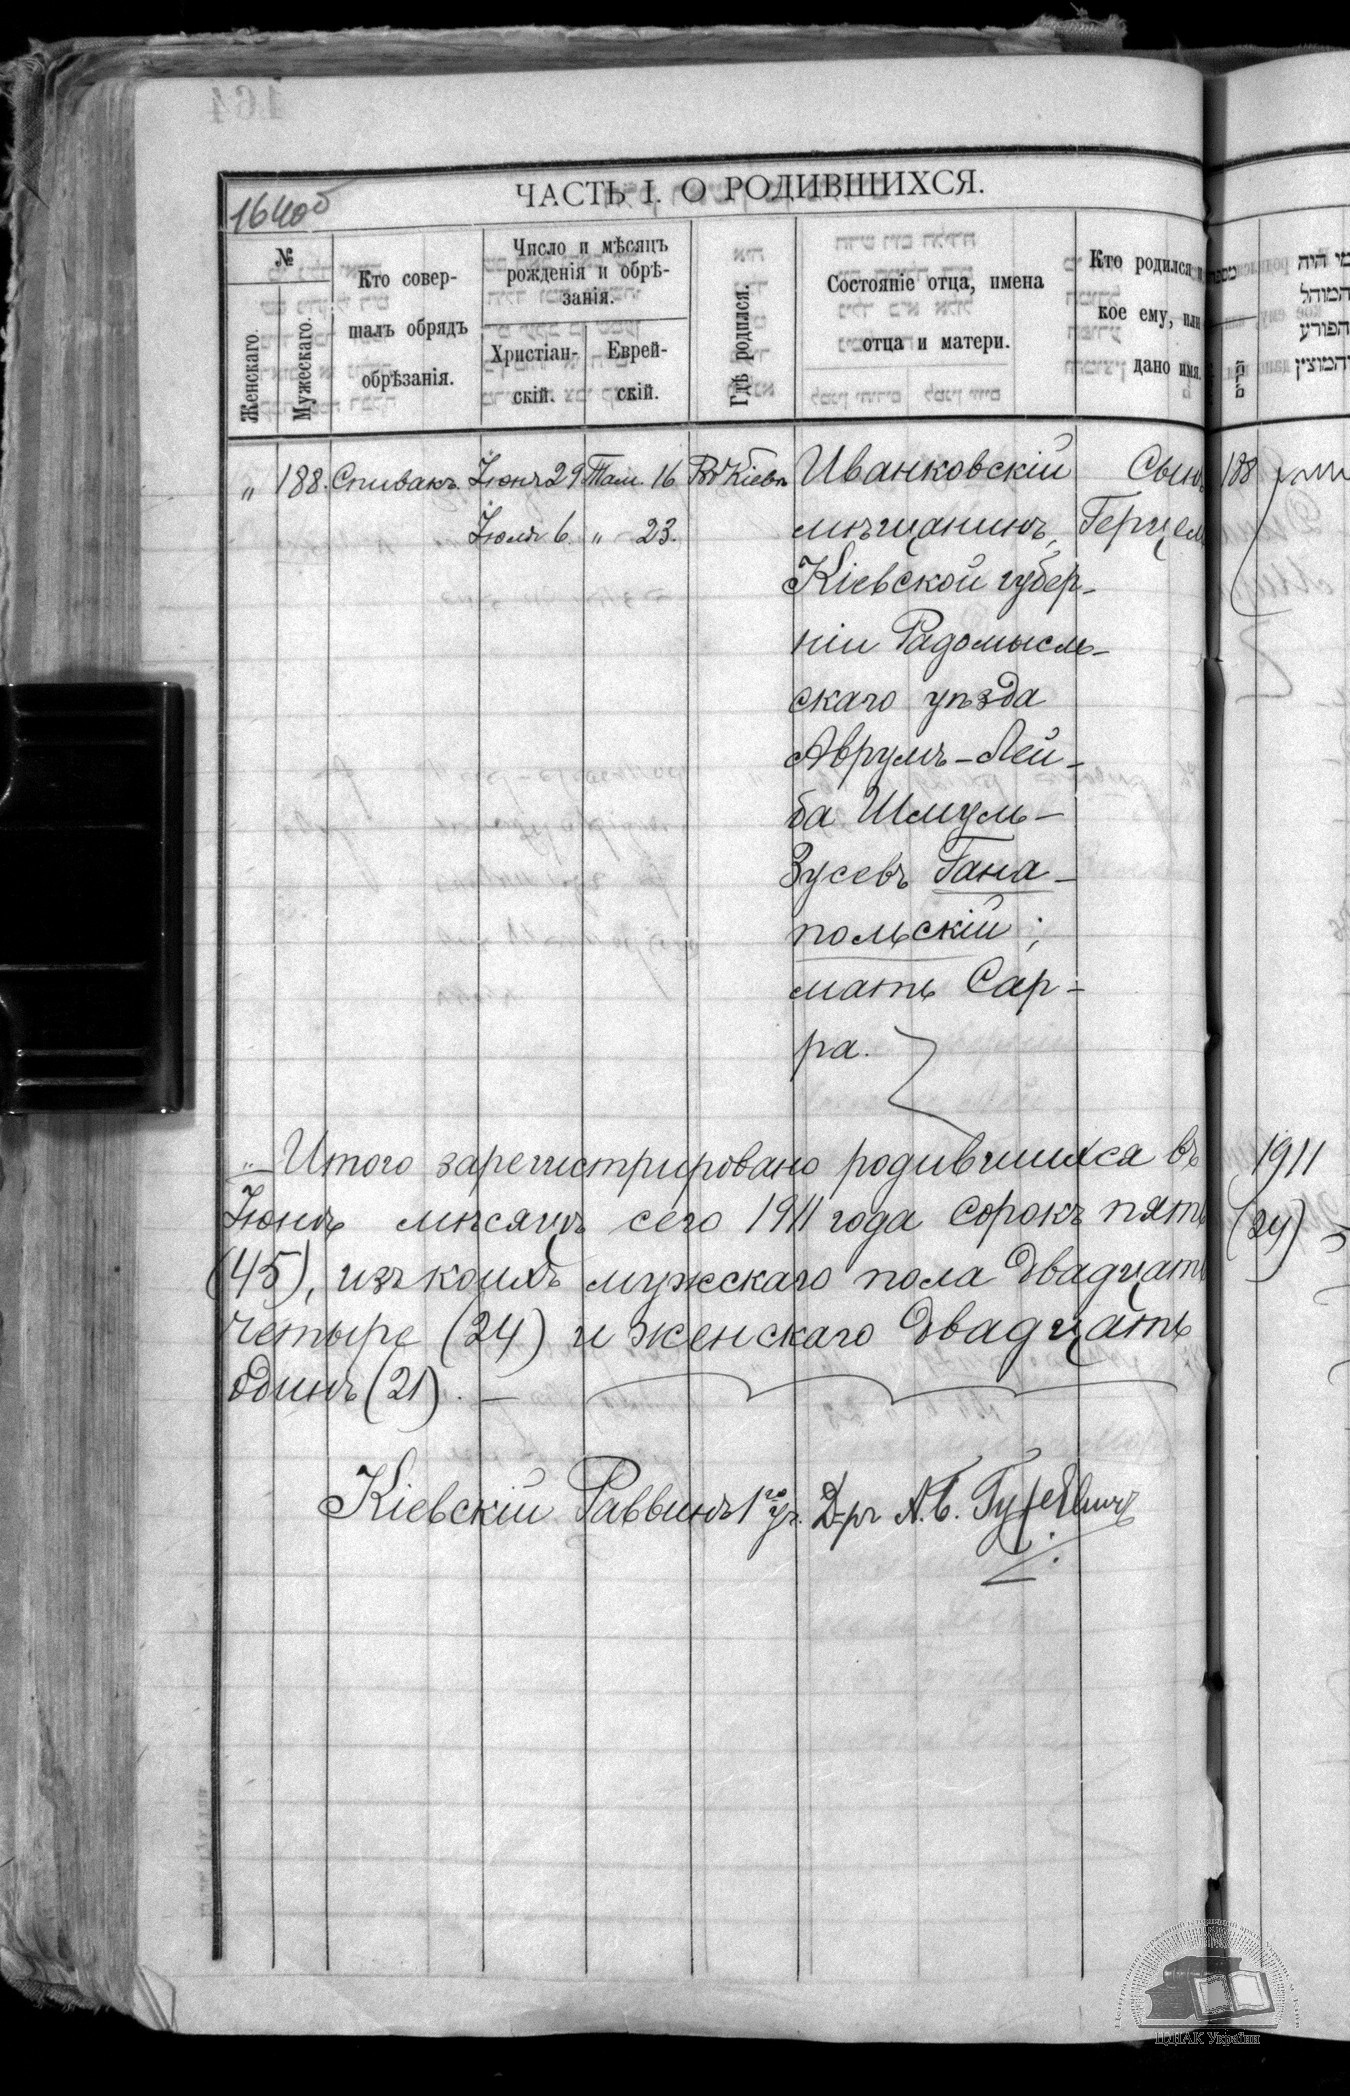 164об
ЧАСТЬ I. О РОДИВШИХСЯ.
№
Женскаго.
Мужескаго.
Кто совер-
шалъ обрядъ
обрѣзанія.
Число и мѣсяцъ
рожденія и обрѣ-
занія.
Христіан-
скій.
Еврей-
скій.
Гдѣ родился.
Состояніе отца, имена
отца и матери.
Кто родился и
кое ему, или
дано имя.
„ 188. Спивакъ. Іюня 29 Там. 16 Въ Кіевѣ Иванковскій Сынъ
Іюля 6. „ 23. мѣщанинъ, Герцель
Кіевской губер-
ніи Радомысль-
скаго уѣзда
Аврумъ-Лей-
ба Шмуль-
Зусевъ Гана-
польскій;
мать Сар-
ра.
„ – Итого зарегистрировано родившихся въ
Іюнѣ мѣсяцѣ сего 1911 года сорокъ пять
(45), изъ коихъ мужскаго пола двадцать
четыре (24) и женскаго двадцать
одинъ (21). –
Кіевскій Раввинъ 1го уч. Д-ръ А. Б. Гуревичъ
מי היה
המוהל
הפורע
והמוצץ
188
1911
(24)
ЦДІАК України